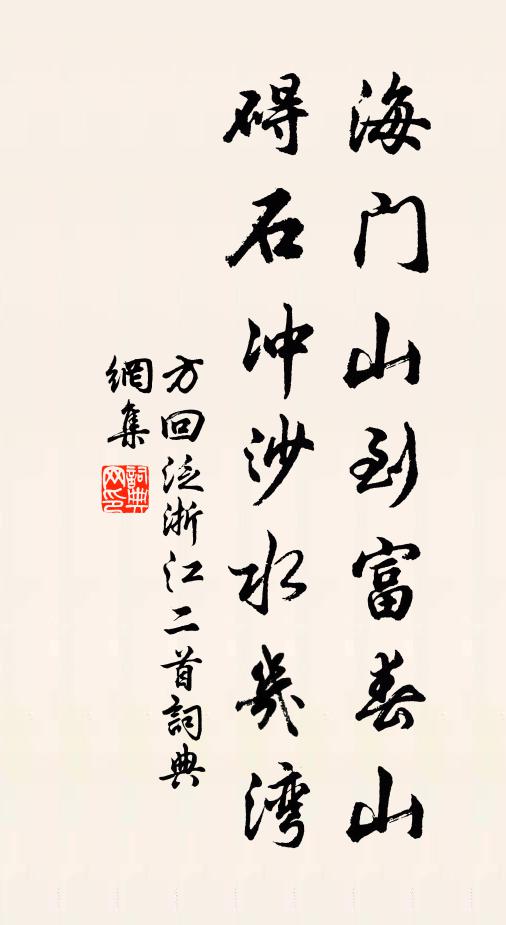 海门山到富春山
碍石冲沙水几湾
方回泛浙江二首詞典
網集
詞典
网印